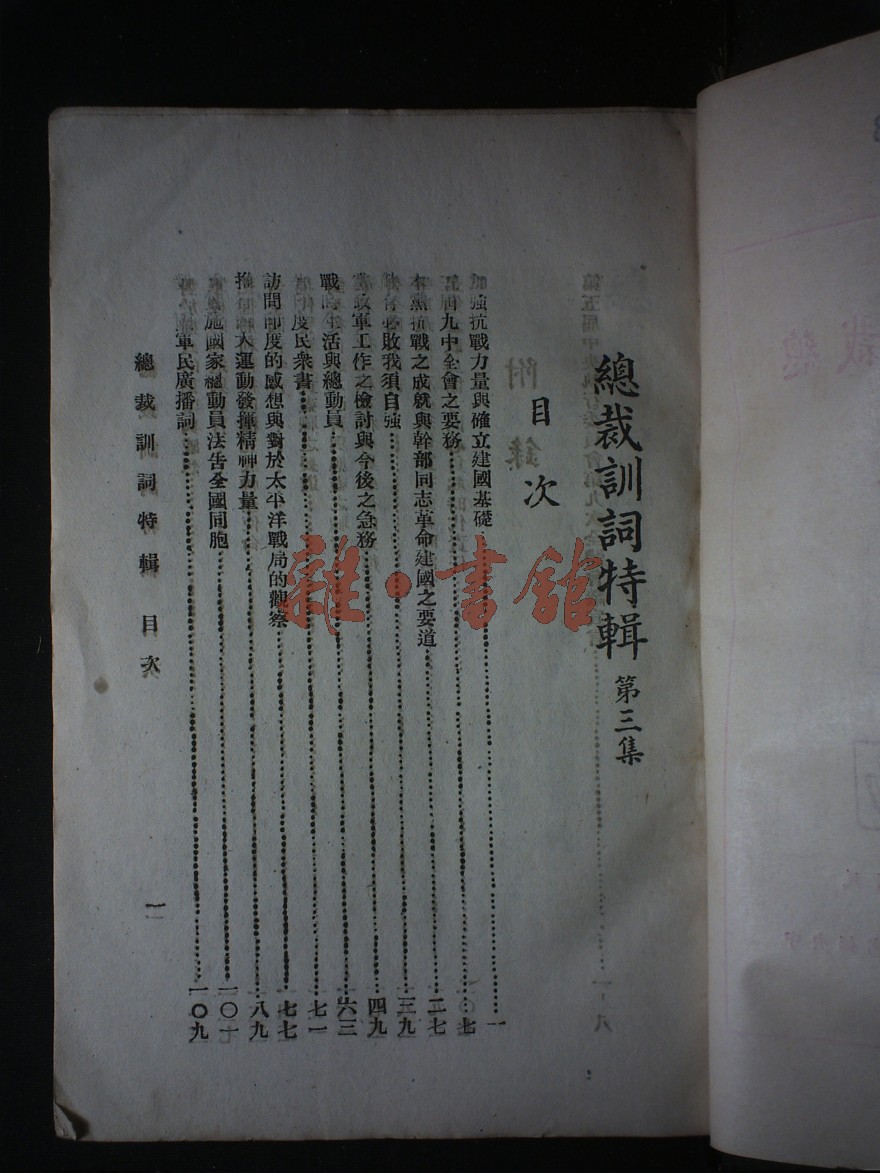 總裁訓詞特輯 第三集
目次
強抗戰力量與確立建國基礎 一
九中全會之要務 七
本黨抗戰之成就與幹部同志革命建國之要道 二七
必敗我須自強 三九
黨政軍工作之檢討與今後之急務 四九
戰時生活與總動員 六三
度民衆書 七一
訪問印度的感想與對於太平洋戰局的觀察 七七
大運動發揮精神力量 八九
施國家總動員法告全國同胞 一〇一
軍民廣播詞 一〇九
總裁訓詞特輯 目次
一
附錄
雜·書館
總裁